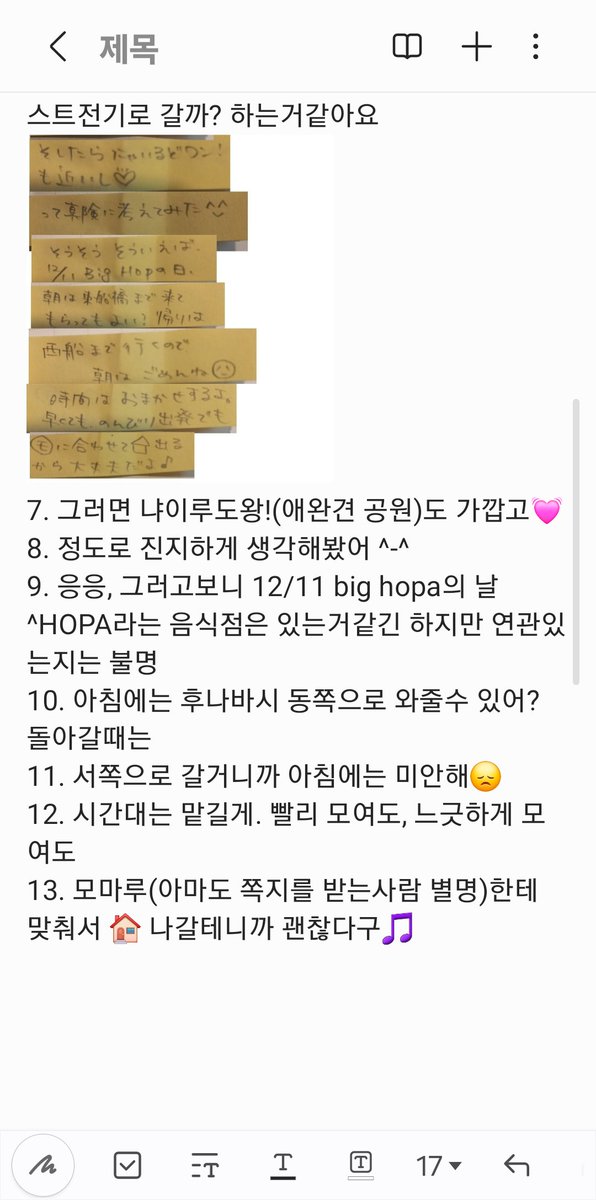 제목
스트전기로 갈까? 하는거같아요
そしたら にゃいるどワン!
も近いし♡
って真険に考えてみた^^
そうそう そういえば、
12/11 Big Hopaの日、
朝は東船橋まで来て
もらってもよい? 帰りは
西船まで行くので
朝は ごめんね
時間は おまかせするよ。
早くても、のんびり出発でも
モに合わせて 出る
から大丈夫だよ♪
7. 그러면 냐이루도왕!(애완견 공원)도 가깝고💓
8. 정도로 진지하게 생각해봤어 ^-^
9. 응응, 그러고보니 12/11 big hopa의 날
^HOPA라는 음식점은 있는거같긴 하지만 연관있
는지는 불명
10. 아침에는 후나바시 동쪽으로 와줄수 있어?
돌아갈때는
11. 서쪽으로 갈거니까 아침에는 미안해😞
12. 시간대는 맡길게. 빨리 모여도, 느긋하게 모
여도
13. 모마루(아마도 쪽지를 받는사람 별명)한테
맞춰서 🏠 나갈테니까 괜찮다구🎵
17